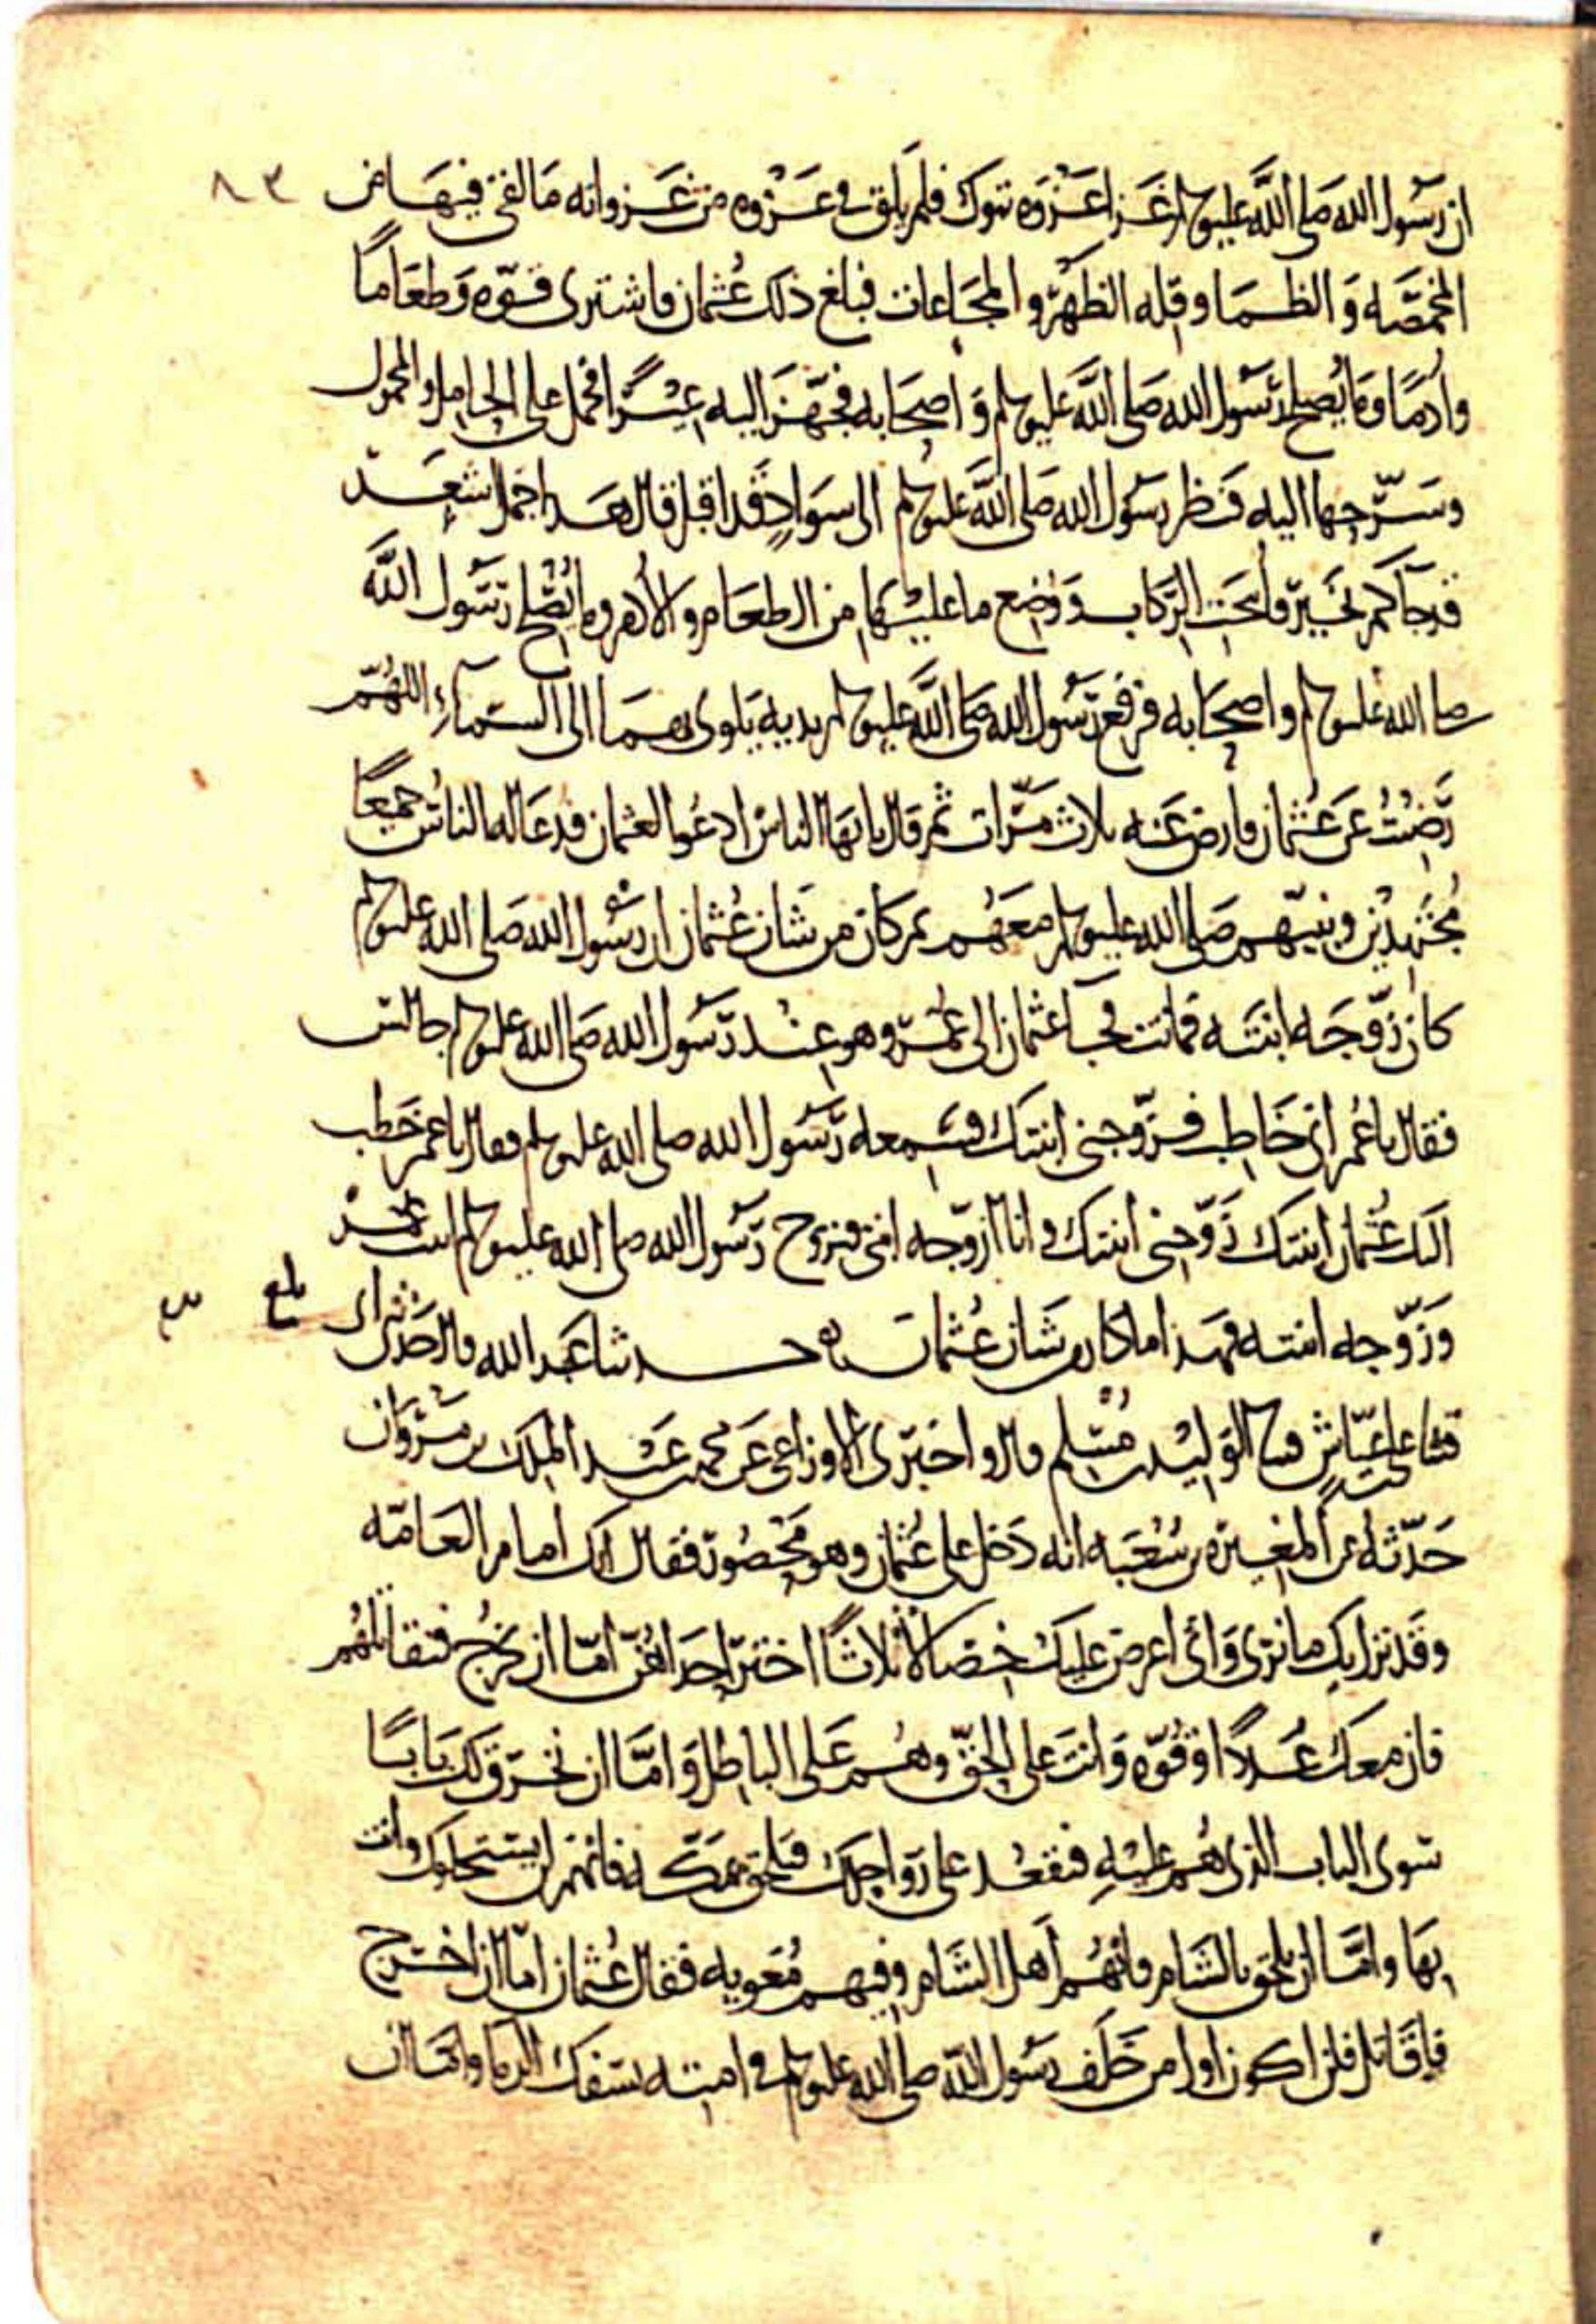 ٨٣
ان رسول الله صلى الله عليه وسلم غزا غزوه تبوك فلم يلق في غزوه من غزواته ما لقي فيها من
المخمصه والظما وقله الظهر والمجاعات فبلغ ذلك عثمان فاشترى قوه وطعاما
وادما وما يصلح لرسول الله صلى الله عليه وسلم واصحابه فجهز اليه عيرا فحمل على الحامل والمحمول
وسرحها اليه فنظر رسول الله صلى الله عليه وسلم الى سواد قد اقبل قال هذا جمل اشعث
قد جاكم بخير فانيخت الركاب ووضع ما عليها من الطعام والادم وما يصلح لرسول الله
صلى الله عليه وسلم واصحابه فرفع رسول الله صلى الله عليه وسلم يديه يلوى بهما الى السماء اللهم
رضيت عن عثمان فارض عنه ثلاث مرات ثم قال يا ايها الناس ادعوا لعثمان فدعا له الناس جميعا
مجتهدين ونبيهم صلى الله عليه وسلم معهم ثم كان من شان عثمان ان رسول الله صلى الله عليه وسلم
كان زوجه ابنته فماتت فجا عثمان الى عمر وهو عند رسول الله صلى الله عليه وسلم جالس
فقال يا عمر اني خاطب فزوجني ابنتك فسمعه رسول الله صلى الله عليه وسلم فقال يا عمر خطب
اليك عثمان ابنتك زوجني ابنتك وانا ازوجه ابنتي فتزوج رسول الله صلى الله عليه وسلم ابنت عمر
وزوجه ابنته فهذا ما كان من شان عثمان حدثنا عبد الله قال حدثني ابي
بلغ
قثنا علي بن عياش قثنا الوليد بن مسلم قال واخبرني الاوزاعي عن محمد بن عبد الملك بن مروان
حدثه عن المغيره بن شعبه انه دخل على عثمان وهو محصور فقال انك امام العامه
وقد نزل بك ما ترى واني اعرض عليك خصالا ثلاثا اختر احداهن اما ان تخرج فتقاتلهم
فان معك عددا وقوه وانت على الحق وهم على الباطل واما ان نخرق لك بابا
سوى الباب الذي هم عليه فتقعد على رواحلك فتلحق بمكه فانهم لن يستحلوك وانت
بها واما ان تلحق بالشام فانهم اهل الشام وفيهم معويه فقال عثمان اما ان اخرج
فاقاتل فلن اكون اول من خلف رسول الله صلى الله عليه وسلم في امته بسفك الدما واما ان